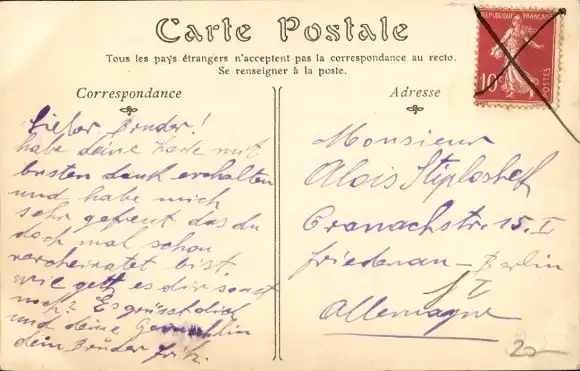 Carte Postale
Tous les pays étrangers n'acceptent pas la correspondance au recto.
Se renseigner à la poste.
Correspondance
Lieber Bruder!
habe deine Karte mit
besten dank erhalten
und habe mich
sehr gefreut das du
doch mal schon
vercheiratet bist.
wie geht es dir sonst
noch? Es grüsst dich
und deine Gemahlin
dein Bruder Fritz.
RÉPUBLIQUE FRANÇAISE
10c
POSTES
Adresse
Monsieur
Alois
Cranachstr. 15. I
Friedenau - Berlin
Allemagne
20